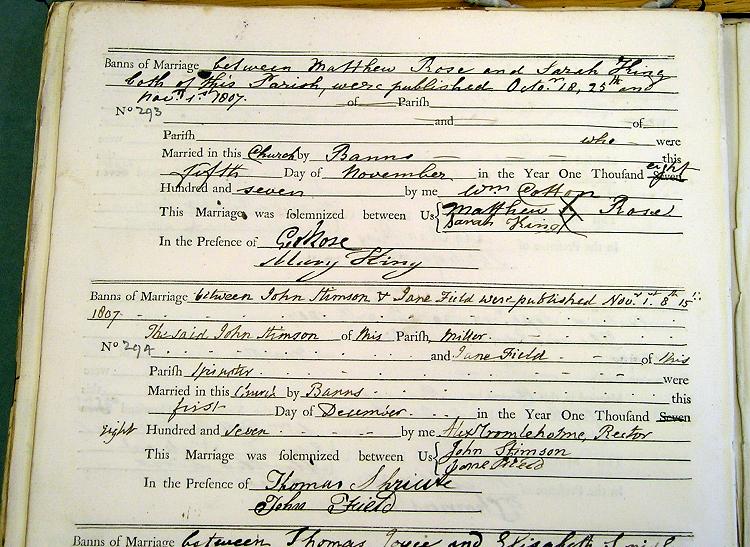 Banns of Marriage between Matthew Rose and Sarah King
both of this Parish, were published Octo.r 18, 25th and
Nov.r 1.st 1807. of Parish
No 293
and of
Parish who were
Married in this Church by Banns this
fifth Day of November in the Year One Thousand Seven eight
Hundred and seven by me Wm Cotton
This Marriage was solemnized between Us Matthew X Rose
Sarah King X
In the Presence of Rose
Mary King
Banns of Marriage between John Stimson & Jane Field were published Nov.r 1.st 8th 15th
1807
The said John Stimson of this Parish, Miller
No 294 and Jane Field of this
Parish Spinster were
Married in this Church by Banns this
first Day of December in the Year One Thousand Seven
eight Hundred and seven by me Alex Rector
This Marriage was solemnized between Us John Stimson
Jane Field
In the Presence of Thomas
John Field
Banns of Marriage between Thomas and Elizabeth